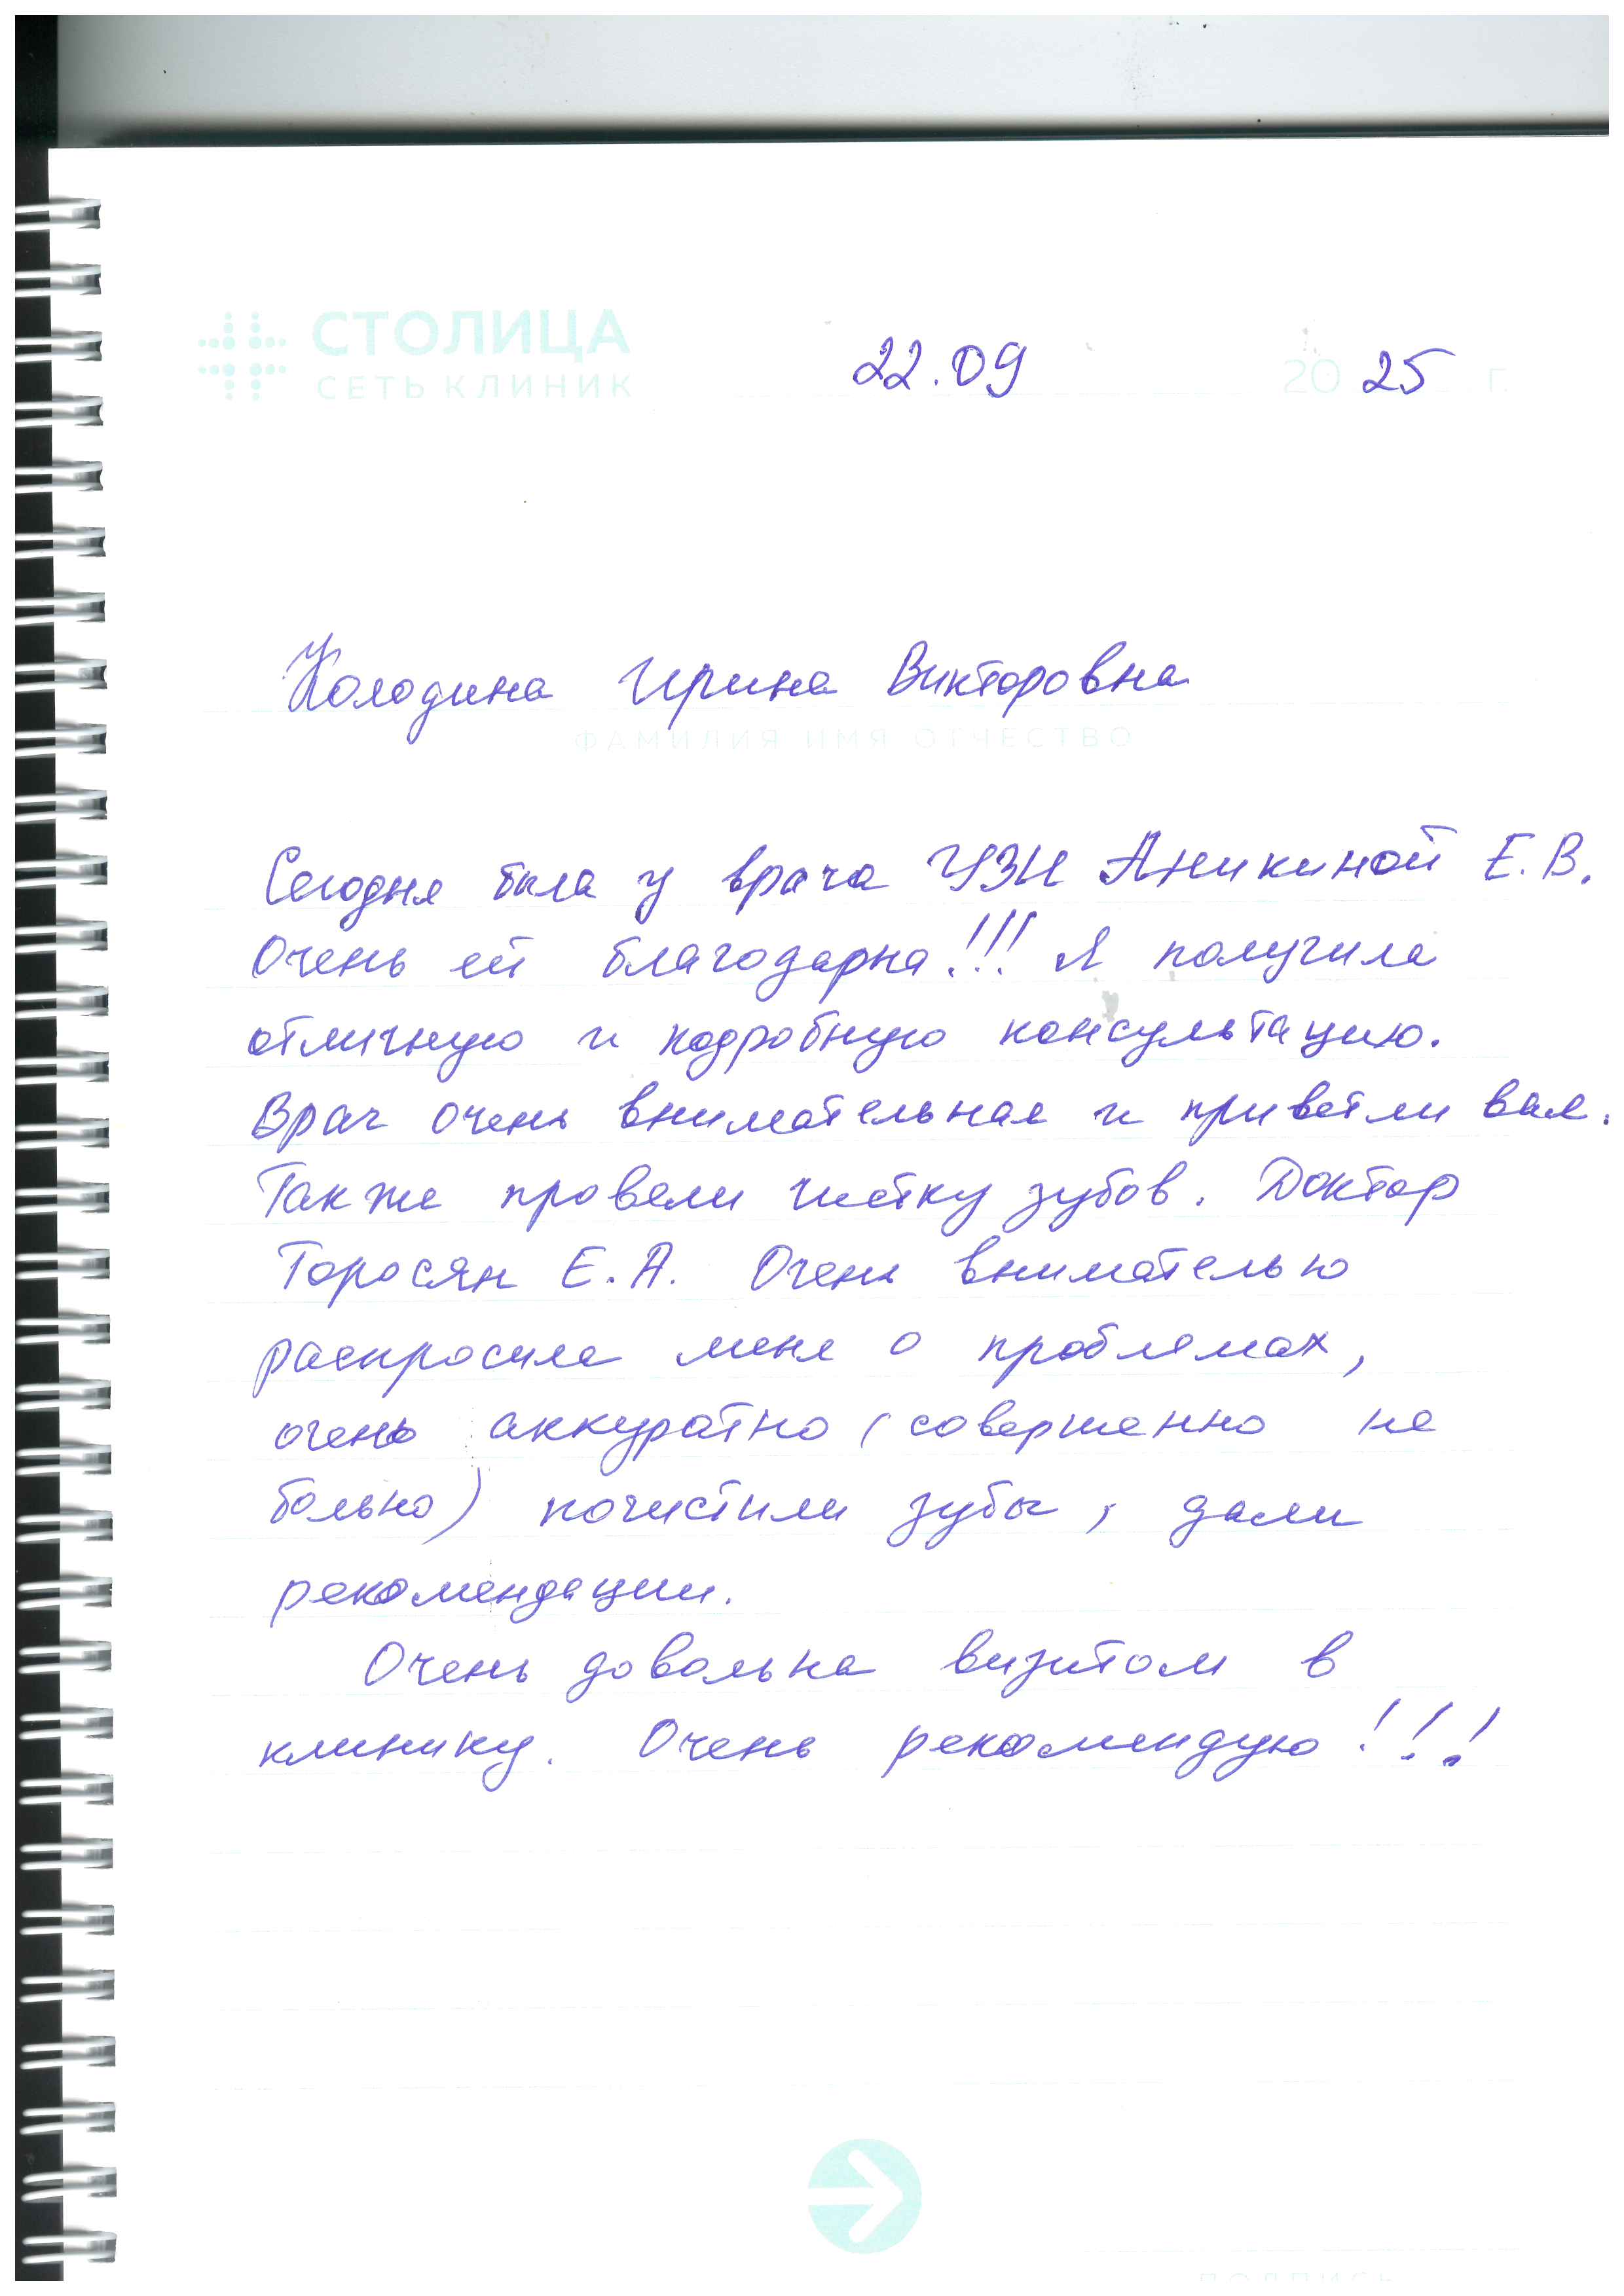 СТОЛИЦА
СЕТЬ КЛИНИК
22.09 2025 г.
Колодина Ирина Викторовна
ФАМИЛИЯ ИМЯ ОТЧЕСТВО
Сегодня была у врача УЗИ Аникиной Е.В.
Очень ей благодарна!!! Я получила
отличную и подробную консультацию.
Врач очень внимательная и приветливая.
Также провели чистку зубов. Доктор
Торосян Е.А. Очень внимателью
распросила меня о проблемах,
очень аккуратно (совершенно не
больно) почистили зубы, дали
рекомендации.
Очень довольна визитом в
клинику. Очень рекомендую!!!
ПОДПИСЬ